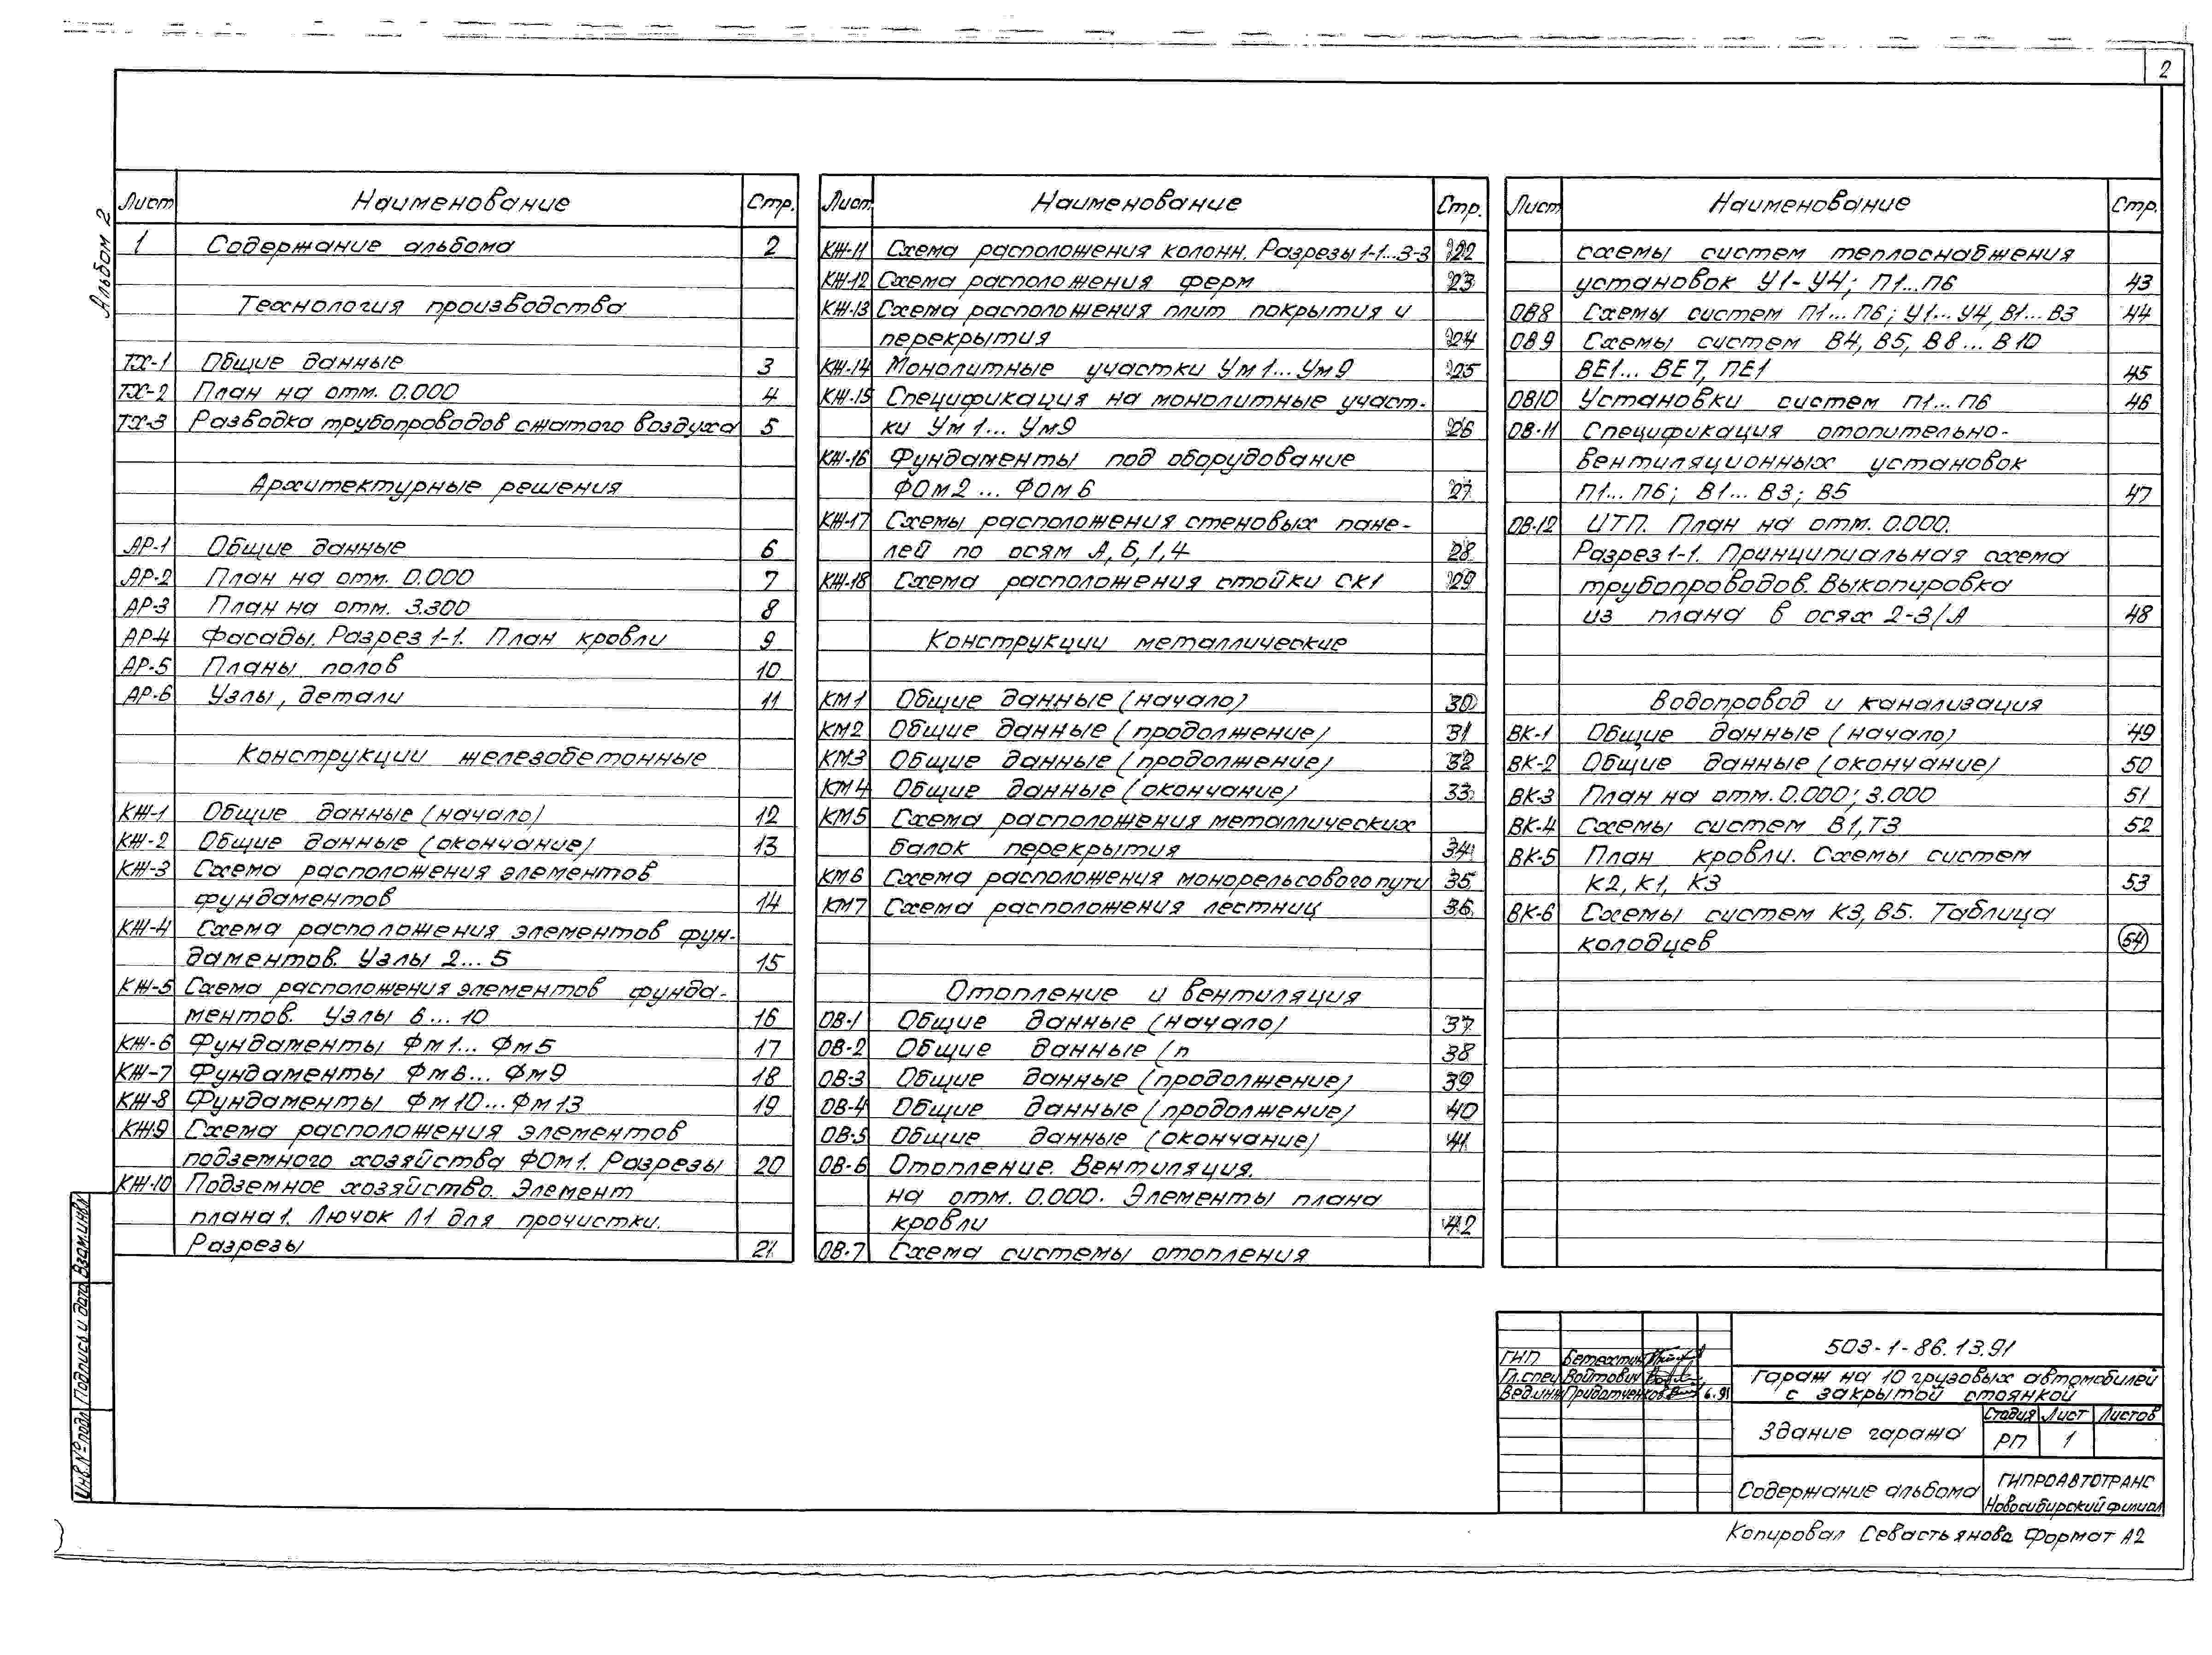 2
Альбом 2
Лист Наименование Стр.
1 Содержание альбома 2
Технология производства
ТХ-1 Общие данные 3
ТХ-2 План на отм. 0.000 4
ТХ-3 Разводка трубопроводов сжатого воздуха 5
Архитектурные решения
АР-1 Общие данные 6
АР-2 План на отм. 0.000 7
АР-3 План на отм. 3.300 8
АР-4 Фасады. Разрез 1-1. План кровли 9
АР-5 Планы полов 10
АР-6 Узлы, детали 11
Конструкции железобетонные
КЖ-1 Общие данные (начало) 12
КЖ-2 Общие данные (окончание) 13
КЖ-3 Схема расположения элементов
фундаментов 14
КЖ-4 Схема расположения элементов фун-
даментов. Узлы 2...5 15
КЖ-5 Схема расположения элементов фунда-
ментов. Узлы 6...10 16
КЖ-6 Фундаменты Фм1... Фм5 17
КЖ-7 Фундаменты Фм6... Фм9 18
КЖ-8 Фундаменты Фм10...Фм13 19
КЖ9 Схема расположения элементов
подземного хозяйства ФОм1. Разрезы 20
КЖ-10 Подземное хозяйство. Элемент
плана 1. Лючок Л1 для прочистки.
Разрезы 21
Лист Наименование Стр.
КЖ-11 Схема расположения колонн. Разрезы 1-1...3-3 22
КЖ-12 Схема расположения ферм 23
КЖ-13 Схема расположения плит покрытия и
перекрытия 24
КЖ-14 Монолитные участки Ум1... Ум9 25
КЖ-15 Спецификация на монолитные участ-
ки Ум1... Ум9 26
КЖ-16 Фундаменты под оборудование
ФОм2 ... ФОм6 27
КЖ-17 Схемы расположения стеновых пане-
лей по осям А, Б, 1, 4 28
КЖ-18 Схема расположения стойки СК1 29
Конструкции металлические
КМ1 Общие данные (начало) 30
КМ2 Общие данные (продолжение) 31
КМ3 Общие данные (продолжение) 32
КМ4 Общие данные (окончание) 33
КМ5 Схема расположения металлических
балок перекрытия 34
КМ6 Схема расположения монорельсового пути 35
КМ7 Схема расположения лестниц 36
Отопление и вентиляция
ОВ-1 Общие данные (начало) 37
ОВ-2 Общие данные (п 38
ОВ-3 Общие данные (продолжение) 39
ОВ-4 Общие данные (продолжение) 40
ОВ-5 Общие данные (окончание) 41
ОВ-6 Отопление. Вентиляция.
на отм. 0.000. Элементы плана
кровли 42
ОВ-7 Схема системы отопления
Лист Наименование Стр.
схемы систем теплоснабжения
установок У1-У4; П1...П6 43
ОВ8 Схемы систем П1...П6; У1...У4, В1...В3 44
ОВ9 Схемы систем В4, В5, В8...В10
ВЕ1... ВЕ7, ПЕ1 45
ОВ10 Установки систем П1...П6 46
ОВ-11 Спецификация отопительно-
вентиляционных установок
П1...П6; В1...В3; В5 47
ОВ-12 ИТП. План на отм. 0.000.
Разрез 1-1. Принципиальная схема
трубопроводов. Выкопировка
из плана в осях 2-3/А 48
Водопровод и канализация
ВК-1 Общие данные (начало) 49
ВК-2 Общие данные (окончание) 50
ВК-3 План на отм. 0.000; 3.000 51
ВК-4 Схемы систем В1, Т3 52
ВК-5 План кровли. Схемы систем
К2, К1, К3 53
ВК-6 Схемы систем К3, В5. Таблица
колодцев 54
Инв.№ подл. Подпись и дата Взам.инв.№
503-1-86.13.91
ГИП Бетехтин
Гл.спец Войтович
Вед.инж Придатченков 6.91
Гараж на 10 грузовых автомобилей
с закрытой стоянкой
Здание гаража
Стадия Лист Листов
РП 1
Содержание альбома
ГИПРОАВТОТРАНС
Новосибирский филиал
Копировал Севастьянова Формат А2